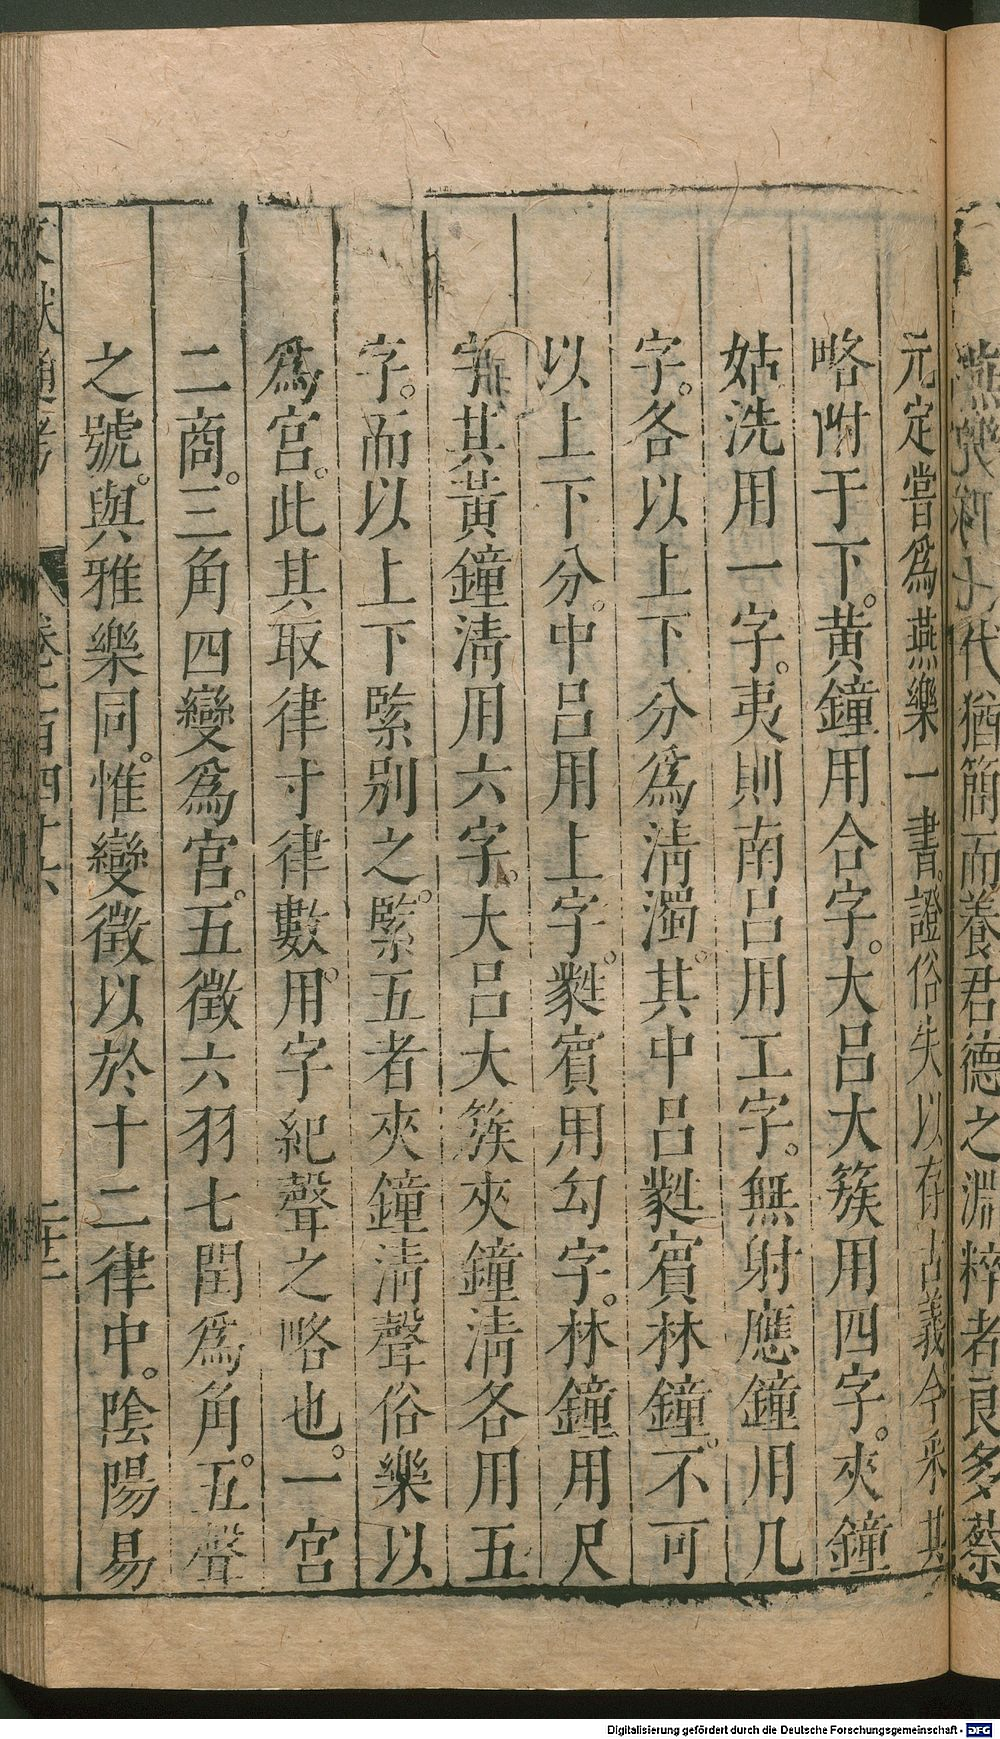 燕樂
七代猶簡而養君德之淵粹者良多蔡
元定嘗爲燕樂一書。證俗失以存古義今采其
略附于下。黃鐘用合字。大呂大簇用四字。夾鐘
姑洗用一字。夷則南呂用工字。無射應鐘用凡
字。各以上下分爲清濁。其中呂蕤賓林鐘。不可
以上下分。中呂用上字。蕤賓用勾字。林鐘用尺
字其黃鐘清用六字。大呂大簇夾鐘清各用五
字。而以上下緊別之。緊五者夾鐘清聲俗樂以
爲宮。此其取律寸律數。用字紀聲之略也。一宮
二商。三角四變爲宮。五徵六羽七閏爲角。五聲
之號。與雅樂同。惟變徵以於十二律中。陰陽易
文獻通考
卷一百四十六
Digitalisierung gefördert durch die Deutsche Forschungsgemeinschaft - DFG